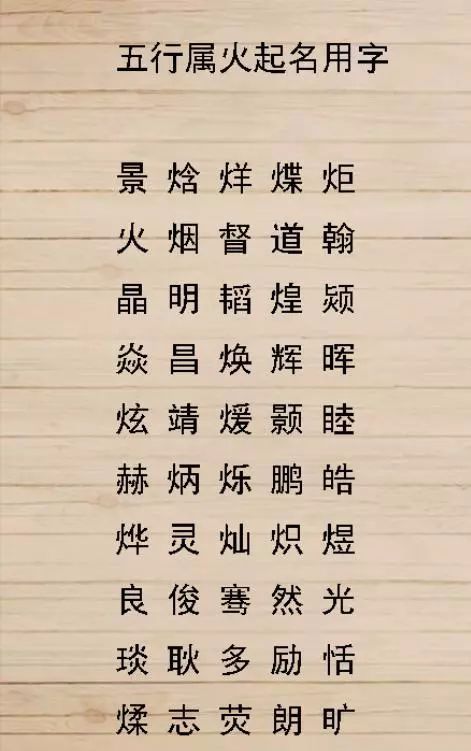 五行属火起名用字
景 焓 烊 煠 炬
火 烟 督 道 翰
晶 明 韬 煌 颎
焱 昌 焕 辉 晖
炫 靖 煖 颢 睦
赫 炳 烁 鹏 皓
烨 灵 灿 炽 煜
良 俊 骞 然 光
琰 耿 多 励 恬
煣 志 荧 朗 旷